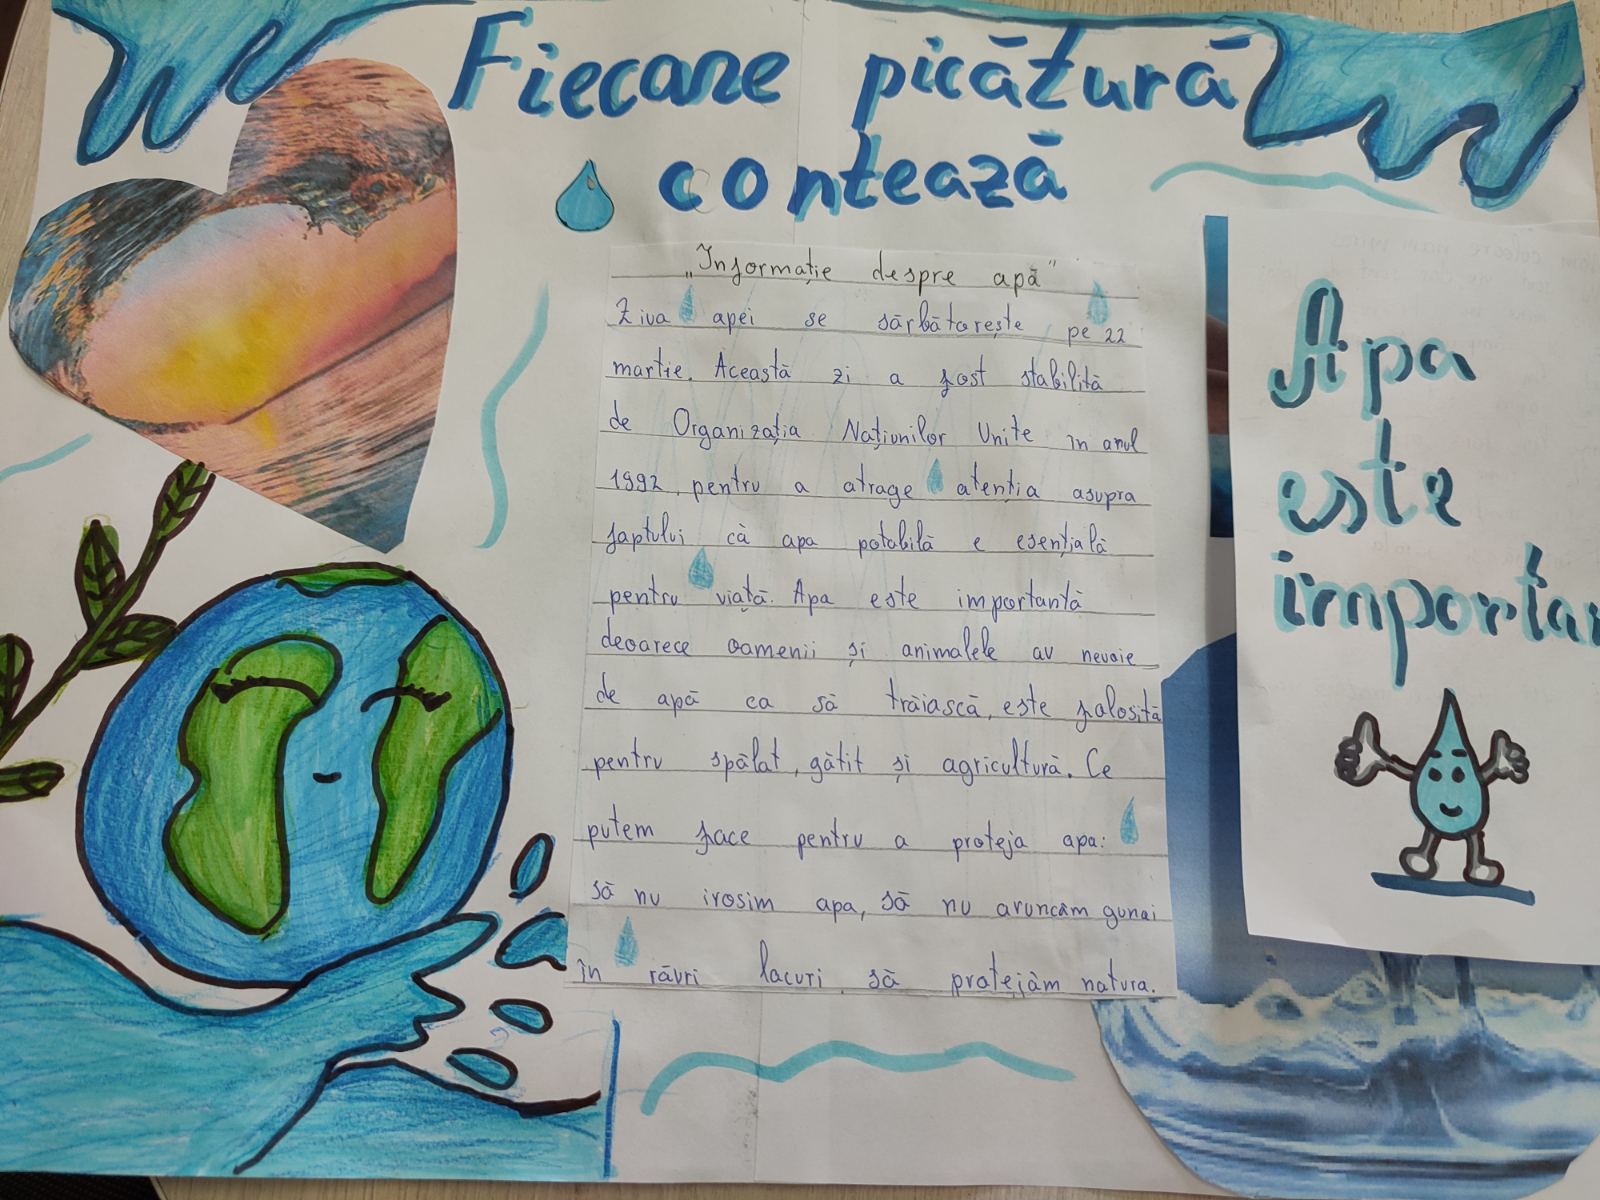 Fiecare picătură
contează
„Informație despre apă”
Ziva apei se sărbătorește pe 22
martie. Această zi a fost stabilită
de Organizația Națiunilor Unite în anul
1992, pentru a atrage atenția asupra
faptului că apa potabilă e esențială
pentru viață. Apa este importantă
deoarece oamenii și animalele au nevoie
de apă ca să trăiască, este folosită
pentru spălat, gătit și agricultură. Ce
putem face pentru a proteja apa:
să nu irosim apa, să nu aruncăm gunoi
în râuri lacuri, să protejăm natura.
Apa
este
importan